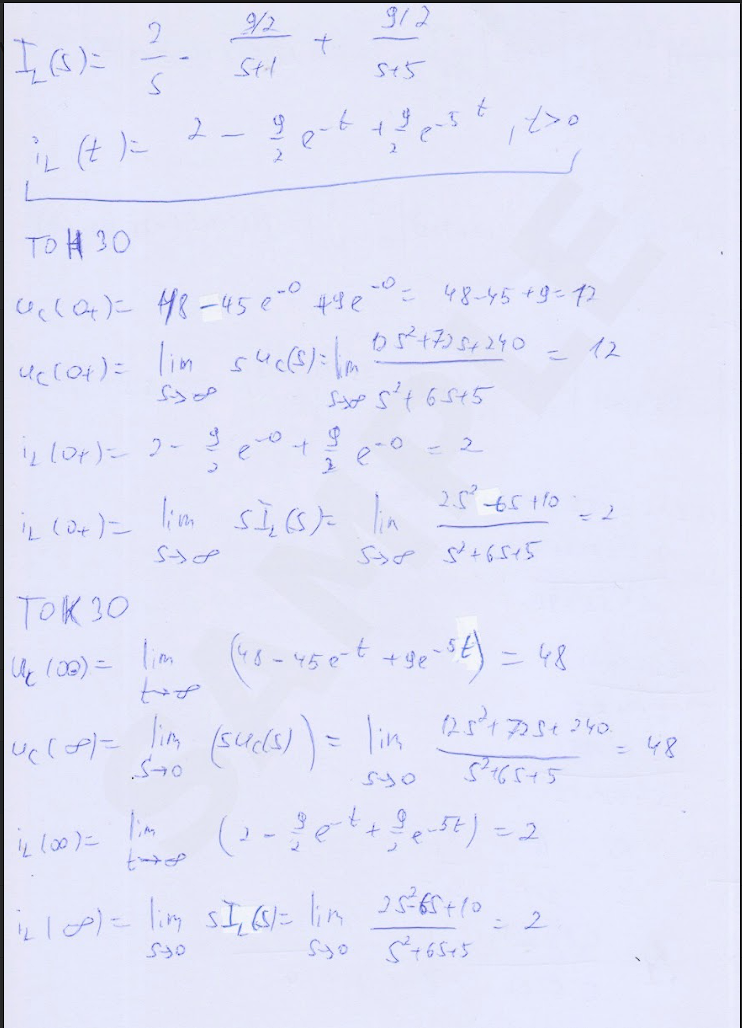 I_L(s) = 2/s - (9/2)/(s+1) + (9/2)/(s+5)
i_L(t) = 2 - 9/2 e^-t + 9/2 e^-5t, t>0
TOH 30
u_C(0+) = 48 - 45e^-0 + 9e^-0 = 48-45+9=12
u_C(0+) = lim s→∞ s u_C(s) = lim s→∞ (12s²+72s+240)/(s²+6s+5) = 12
i_L(0+) = 2 - 9/2 e^-0 + 9/2 e^-0 = 2
i_L(0+) = lim s→∞ sI_L(s) = lim s→∞ (2s²-6s+10)/(s²+6s+5) = 2
TOK30
u_C(∞) = lim t→∞ (48 - 45e^-t + 9e^-5t) = 48
u_C(∞) = lim s→0 (s u_C(s)) = lim s→0 (12s²+72s+240)/(s²+6s+5) = 48
i_L(∞) = lim t→∞ (2 - 9/2 e^-t + 9/2 e^-5t) = 2
i_L(∞) = lim s→0 sI_L(s) = lim s→0 (2s²-6s+10)/(s²+6s+5) = 2
SAMPLE